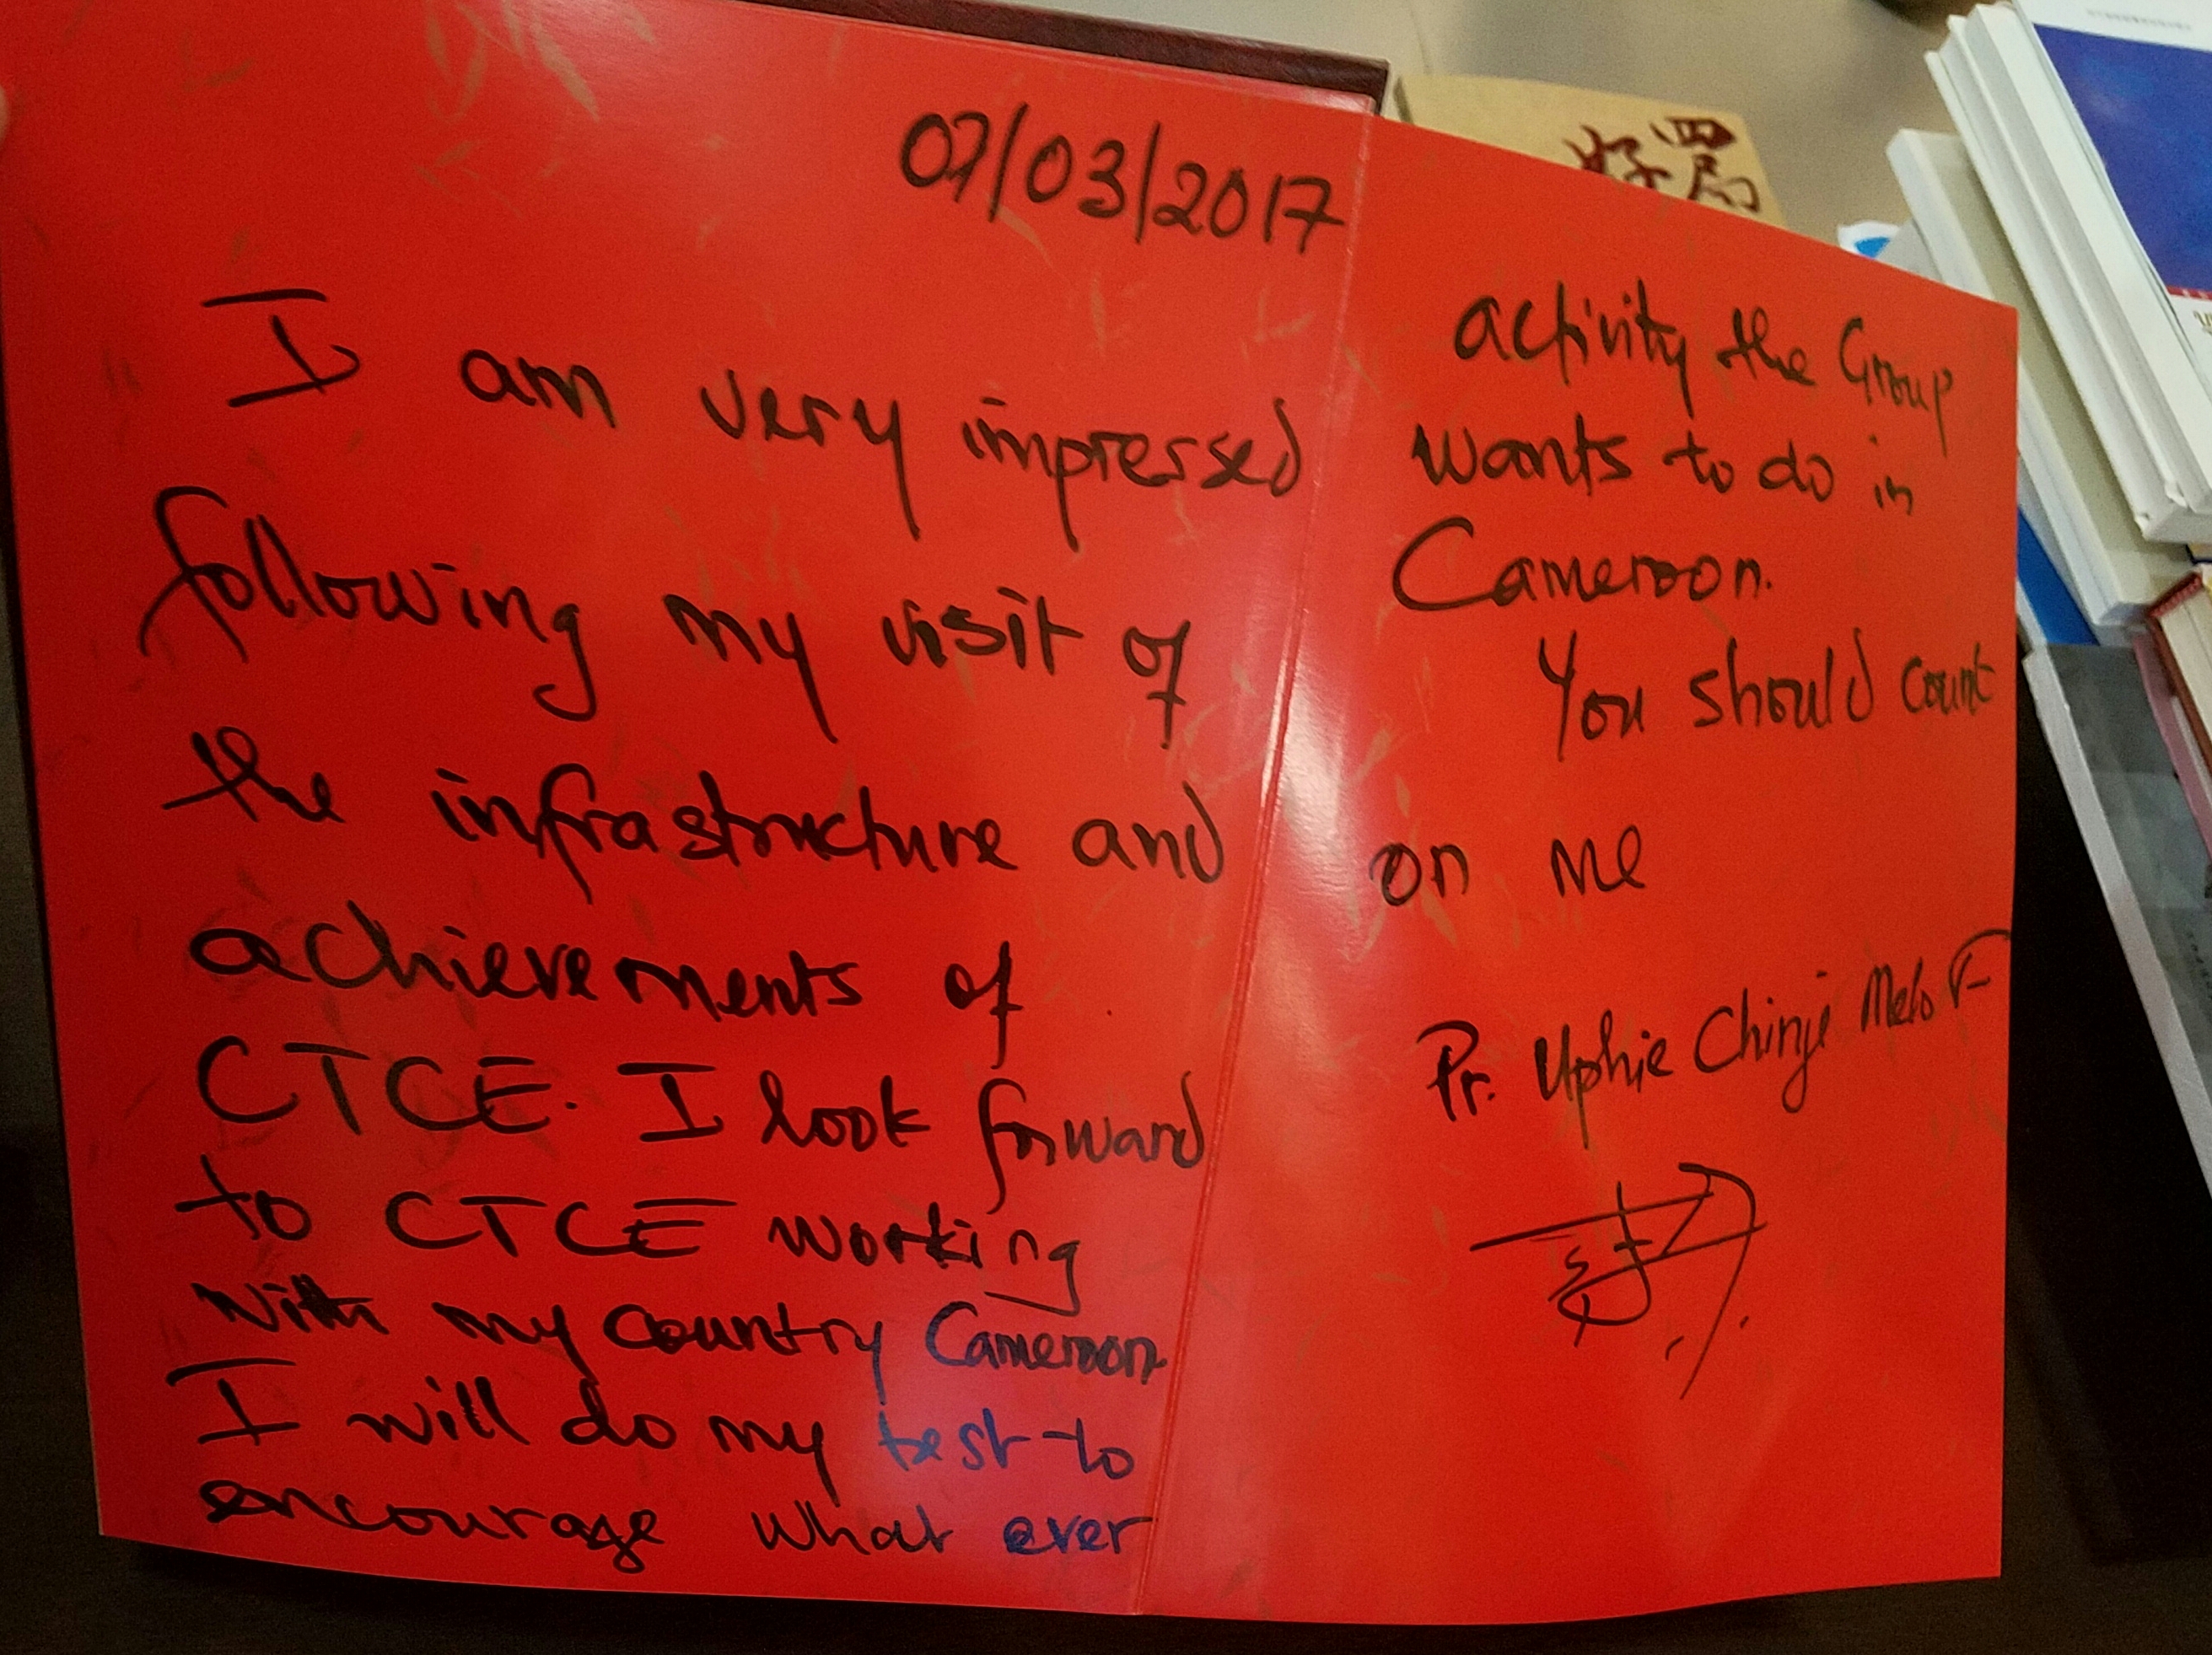 07/03/2017
I am very impressed
following my visit of
the infrastructure and
achievements of
CTCE. I look forward
to CTCE working
with my country Cameroon.
I will do my best to
encourage what ever
activity the Group
wants to do in
Cameroon.
You should count
on me
Pr. Uphie Chinje Melo F